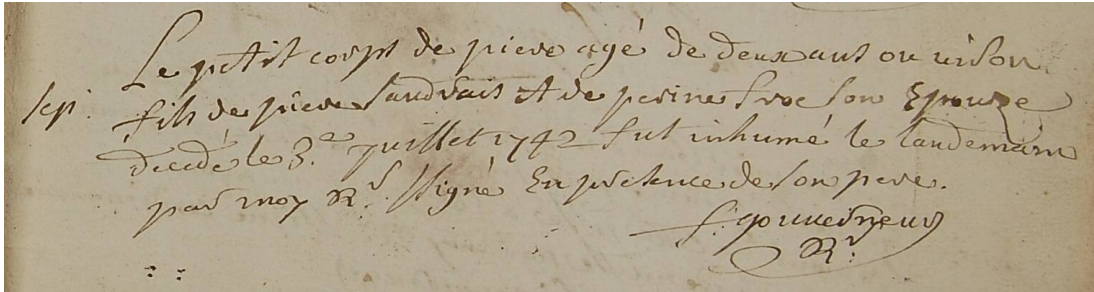 Le petit corps de piere agé de deux ans ou viron
sep. fils de piere Landrais et de perine froc son Epouze
decedé le 3.e juillet 1742 fut inhumé le landemain
par moy Rr. ssigné En presence de son pere.
f. gouverneur
Rr.